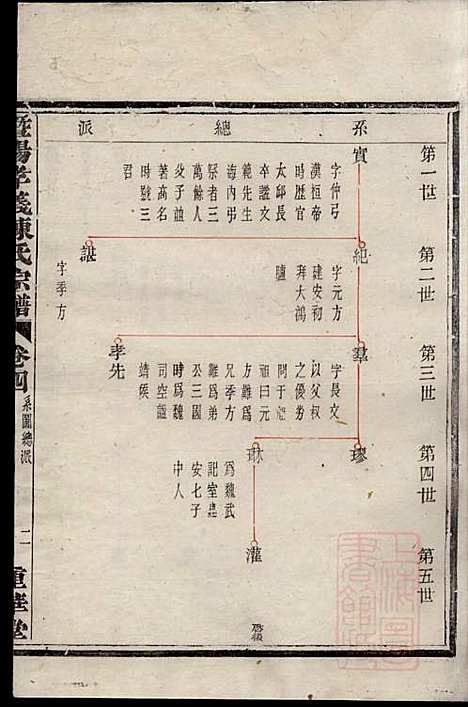 系
總
派
第一世
第二世
第三世
第四世
第五世
實
字仲弓
漢桓帝
時歷官
太邱長
卒諡文
範先生
海內弔
祭者三
萬餘人
父子並
著高名
時號三
君
紀
字元方
建安初
拜大鴻
臚
諶
字季方
羣
字長文
以父叔
之優劣
問于祖
祖曰元
方難爲
兄季方
難爲弟
時爲魏
公三國
司空諡
靖侯
孝先
璆
琳
爲魏武
記室
安七子
中人
灌
暨陽孝義陳氏宗譜
卷四
系圖總派
二
重華堂
上海圖書館藏